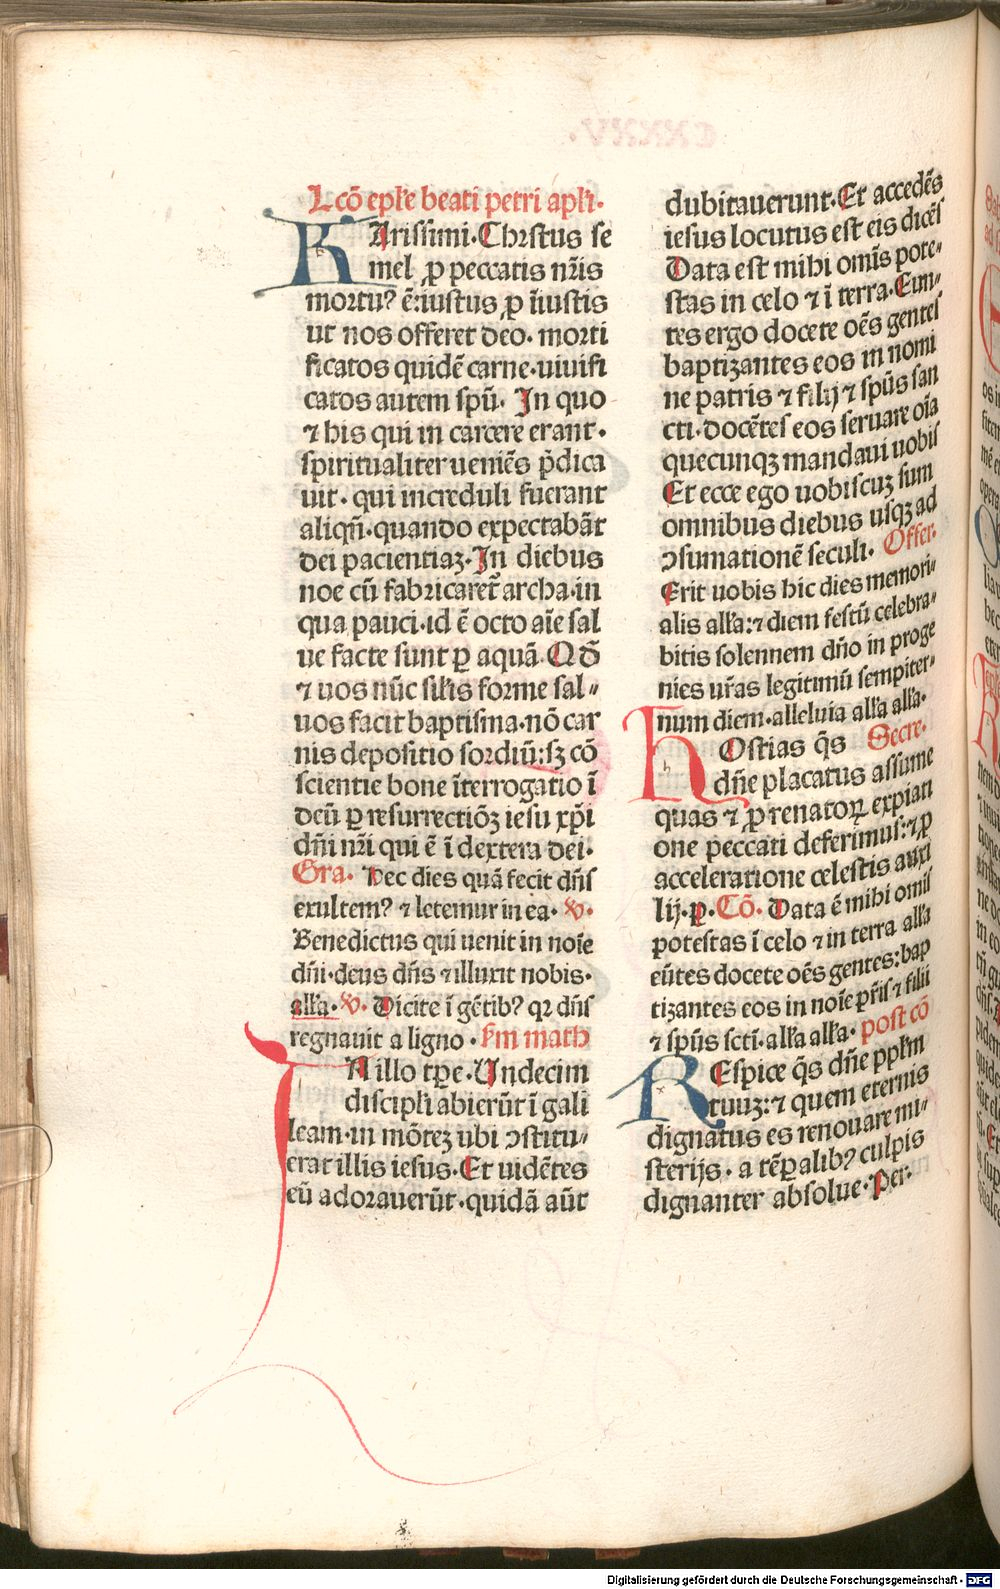 Lcō epl'e beati petri apl'i.
KArissimi. Christus se
mel ꝓ peccatis nr̄is
mortuꝰ ē: iustus ꝓ īiustis
ut nos offeret deo. morti
ficatos quidē carne. uiuifi
catos autem spū. In quo
⁊ his qui in carcere erant.
spiritualiter ueniēs p̄dica
uit. qui increduli fuerant
aliqn̄. quando expectabāt
dei pacientiaꝫ. In diebus
noe cū fabricaret᷑ archa. in
qua pauci. id ē octo aīe sal
ue facte sunt ꝑ aquā. Qd̄
⁊ uos nūc sil'is forme sal〃
uos facit baptisma. nō car
nis depositio sordiū: sꝫ cō
scientie bone īterrogatio ī
deū ꝑ resurrectiōꝫ iesu xp̄i
dn̄i nr̄i qui ē ī dextera dei.
Gra. Hec dies quā fecit dn̄s
exultemꝰ ⁊ letemur in ea. v.
Benedictus qui uenit in noīe
dn̄i. deus dn̄s ⁊ illuxit nobis.
all'a. v. Dicite ī gētibꝰ qꝛ dn̄s
regnauit a ligno. s'm math
IN illo tp̄e. Undecim
discipl'i abierūt ī gali
leam. in mōteꝫ ubi ↄstitu〃
erat illis iesus. Et uidētes
eū adorauerūt. quidā aūt
dubitauerunt. Et accedēs
iesus locutus est eis dicēs
Data est mihi omīs pote〃
stas in celo ⁊ ī terra. Eun〃
tes ergo docete oēs gentes
baptizantes eos in nomi
ne patris ⁊ filij ⁊ spūs san
cti. docētes eos seruare oīa
quecunqꝫ mandaui uobis
Et ecce ego uobiscuꝫ sum
omnibus diebus usqꝫ ad
ↄsumationē seculi. Offer.
Erit uobis hic dies memori〃
alis all'a: ⁊ diem festū celebra〃
bitis solennem dn̄o in proge
nies ur̄as legitimū sempiter〃
num diem. alleluia all'a all'a.
HOstias q̄s Secre.
dn̄e placatus assume
quas ⁊ ꝓ renatoꝝ expiati
one peccati deferimus: ⁊ ꝓ
acceleratione celestis auxi
lij. ꝑ. Cō. Data ē mihi omīs
potestas ī celo ⁊ in terra all'a
eūtes docete oēs gentes: bap
tizantes eos in noīe pr̄is ⁊ filii
⁊ spūs scti. all'a all'a. post cō
REspice q̄s dn̄e ppl'm
tuuꝫ: ⁊ quem eternis
dignatus es renouare mi〃
sterijs. a tēꝑalibꝰ culpis
dignanter absolue. Per.
Digitalisierung gefördert durch die Deutsche Forschungsgemeinschaft - DFG